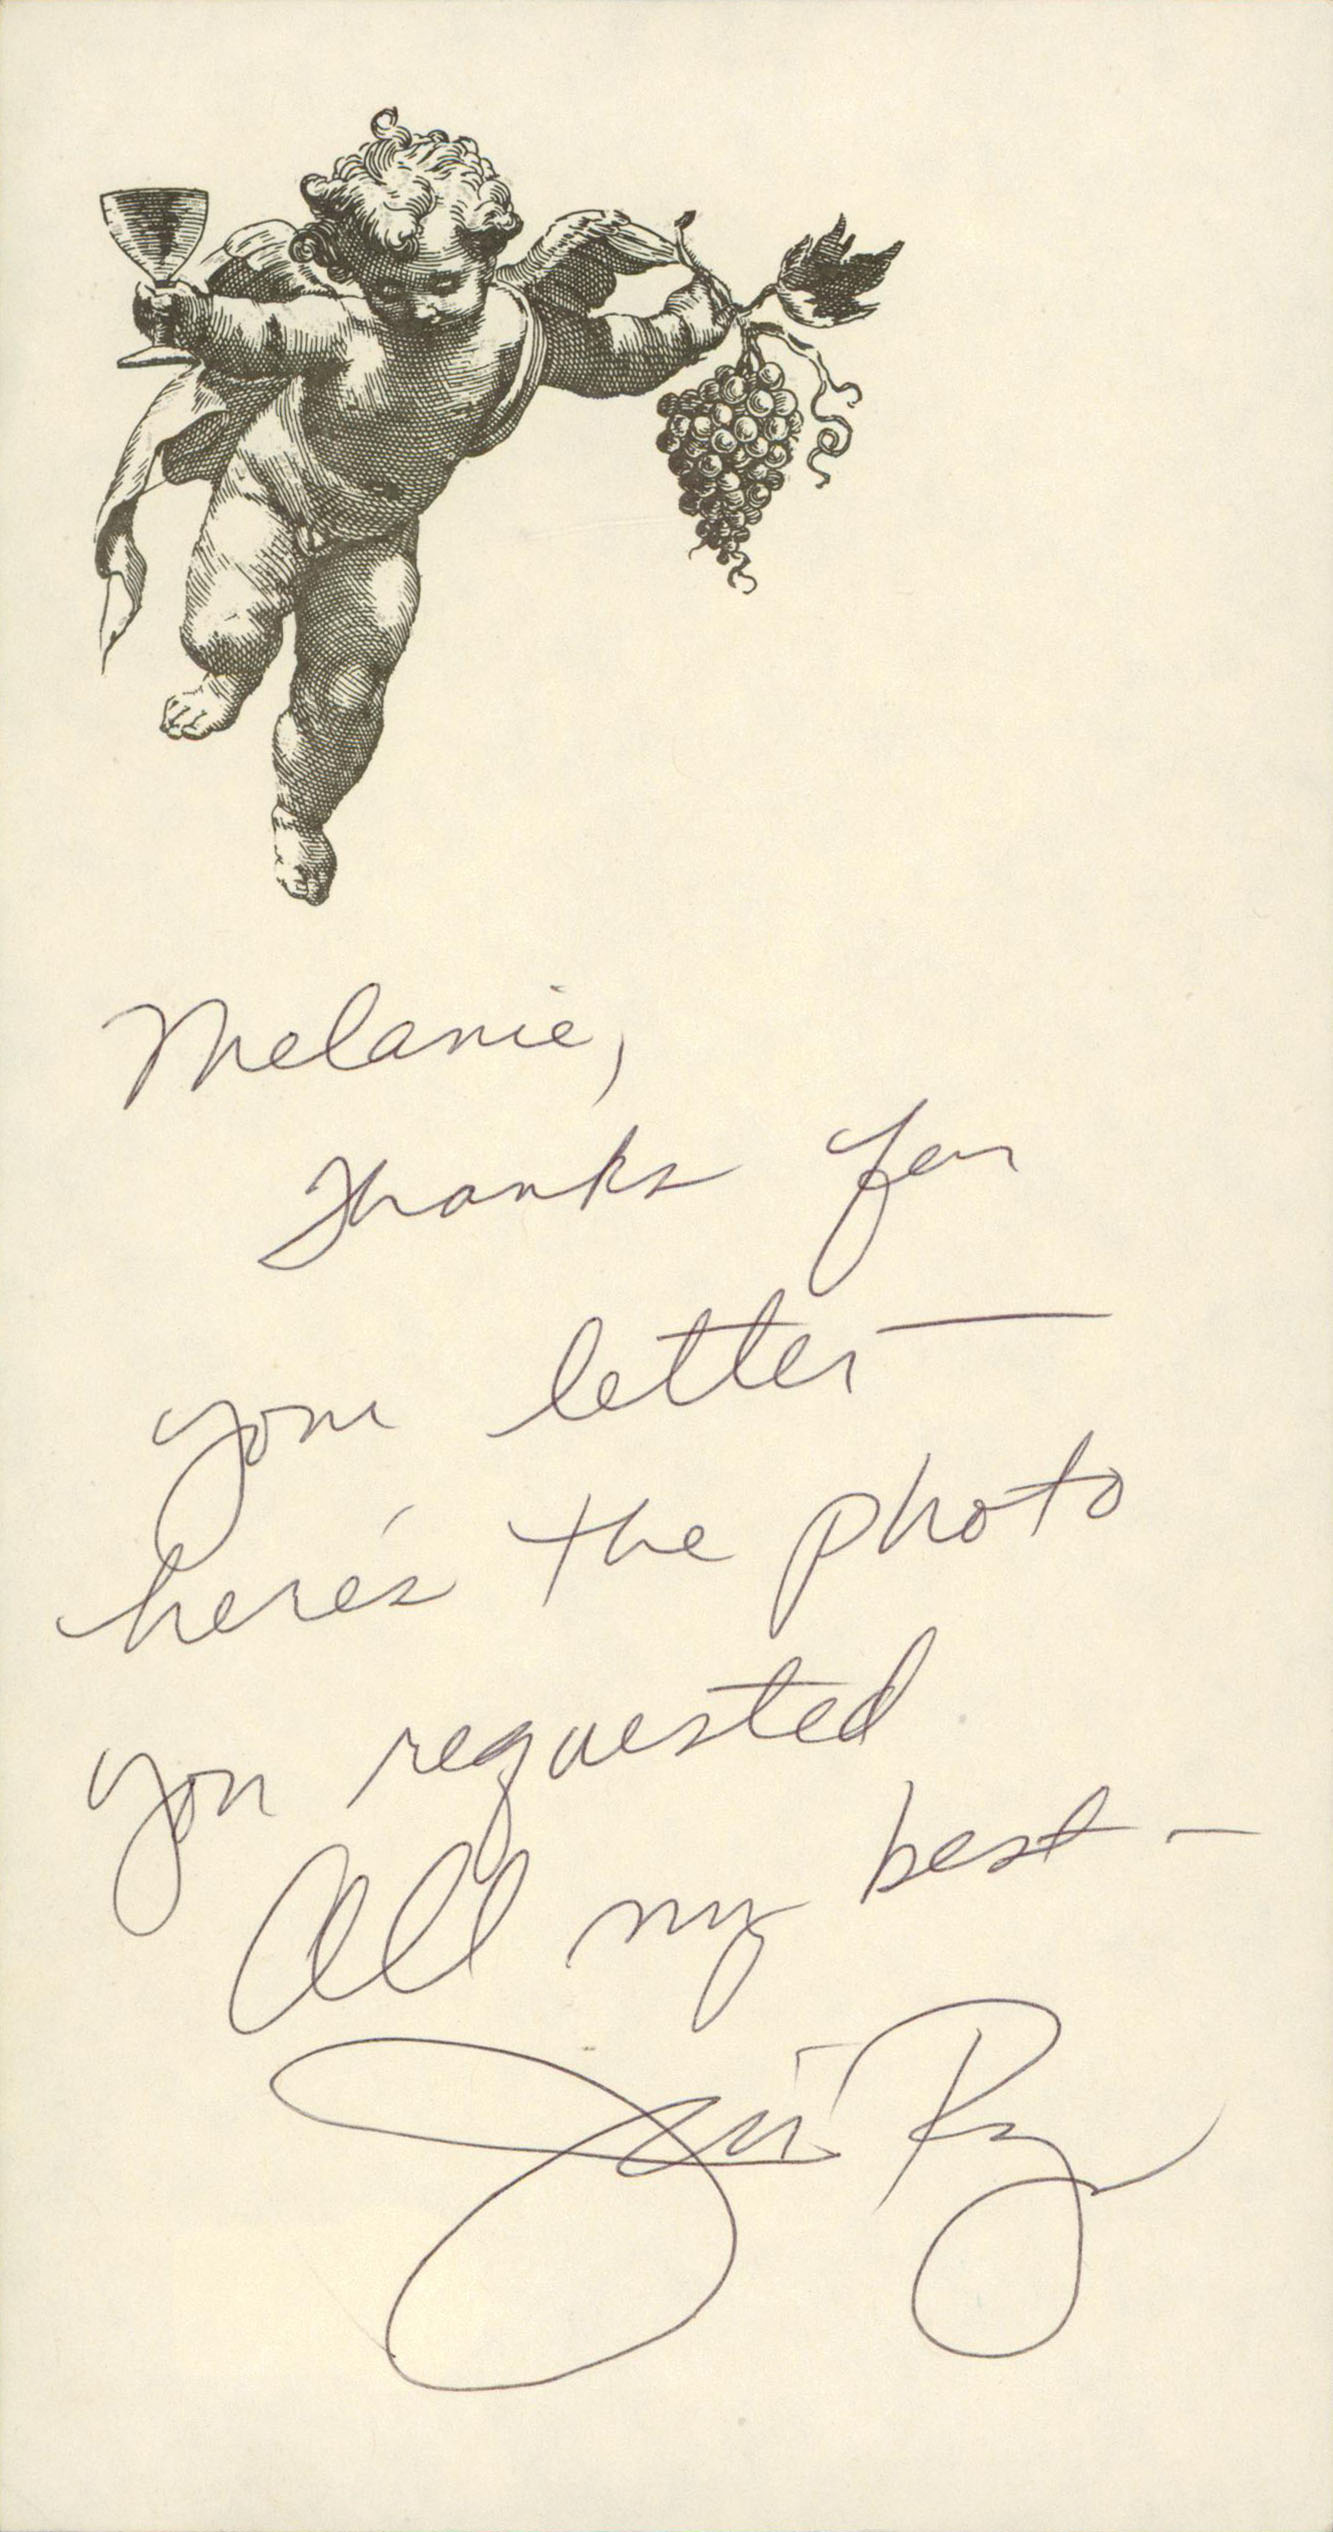 Melanie,
Thanks for
your letter —
here's the photo
you requested
All my best –